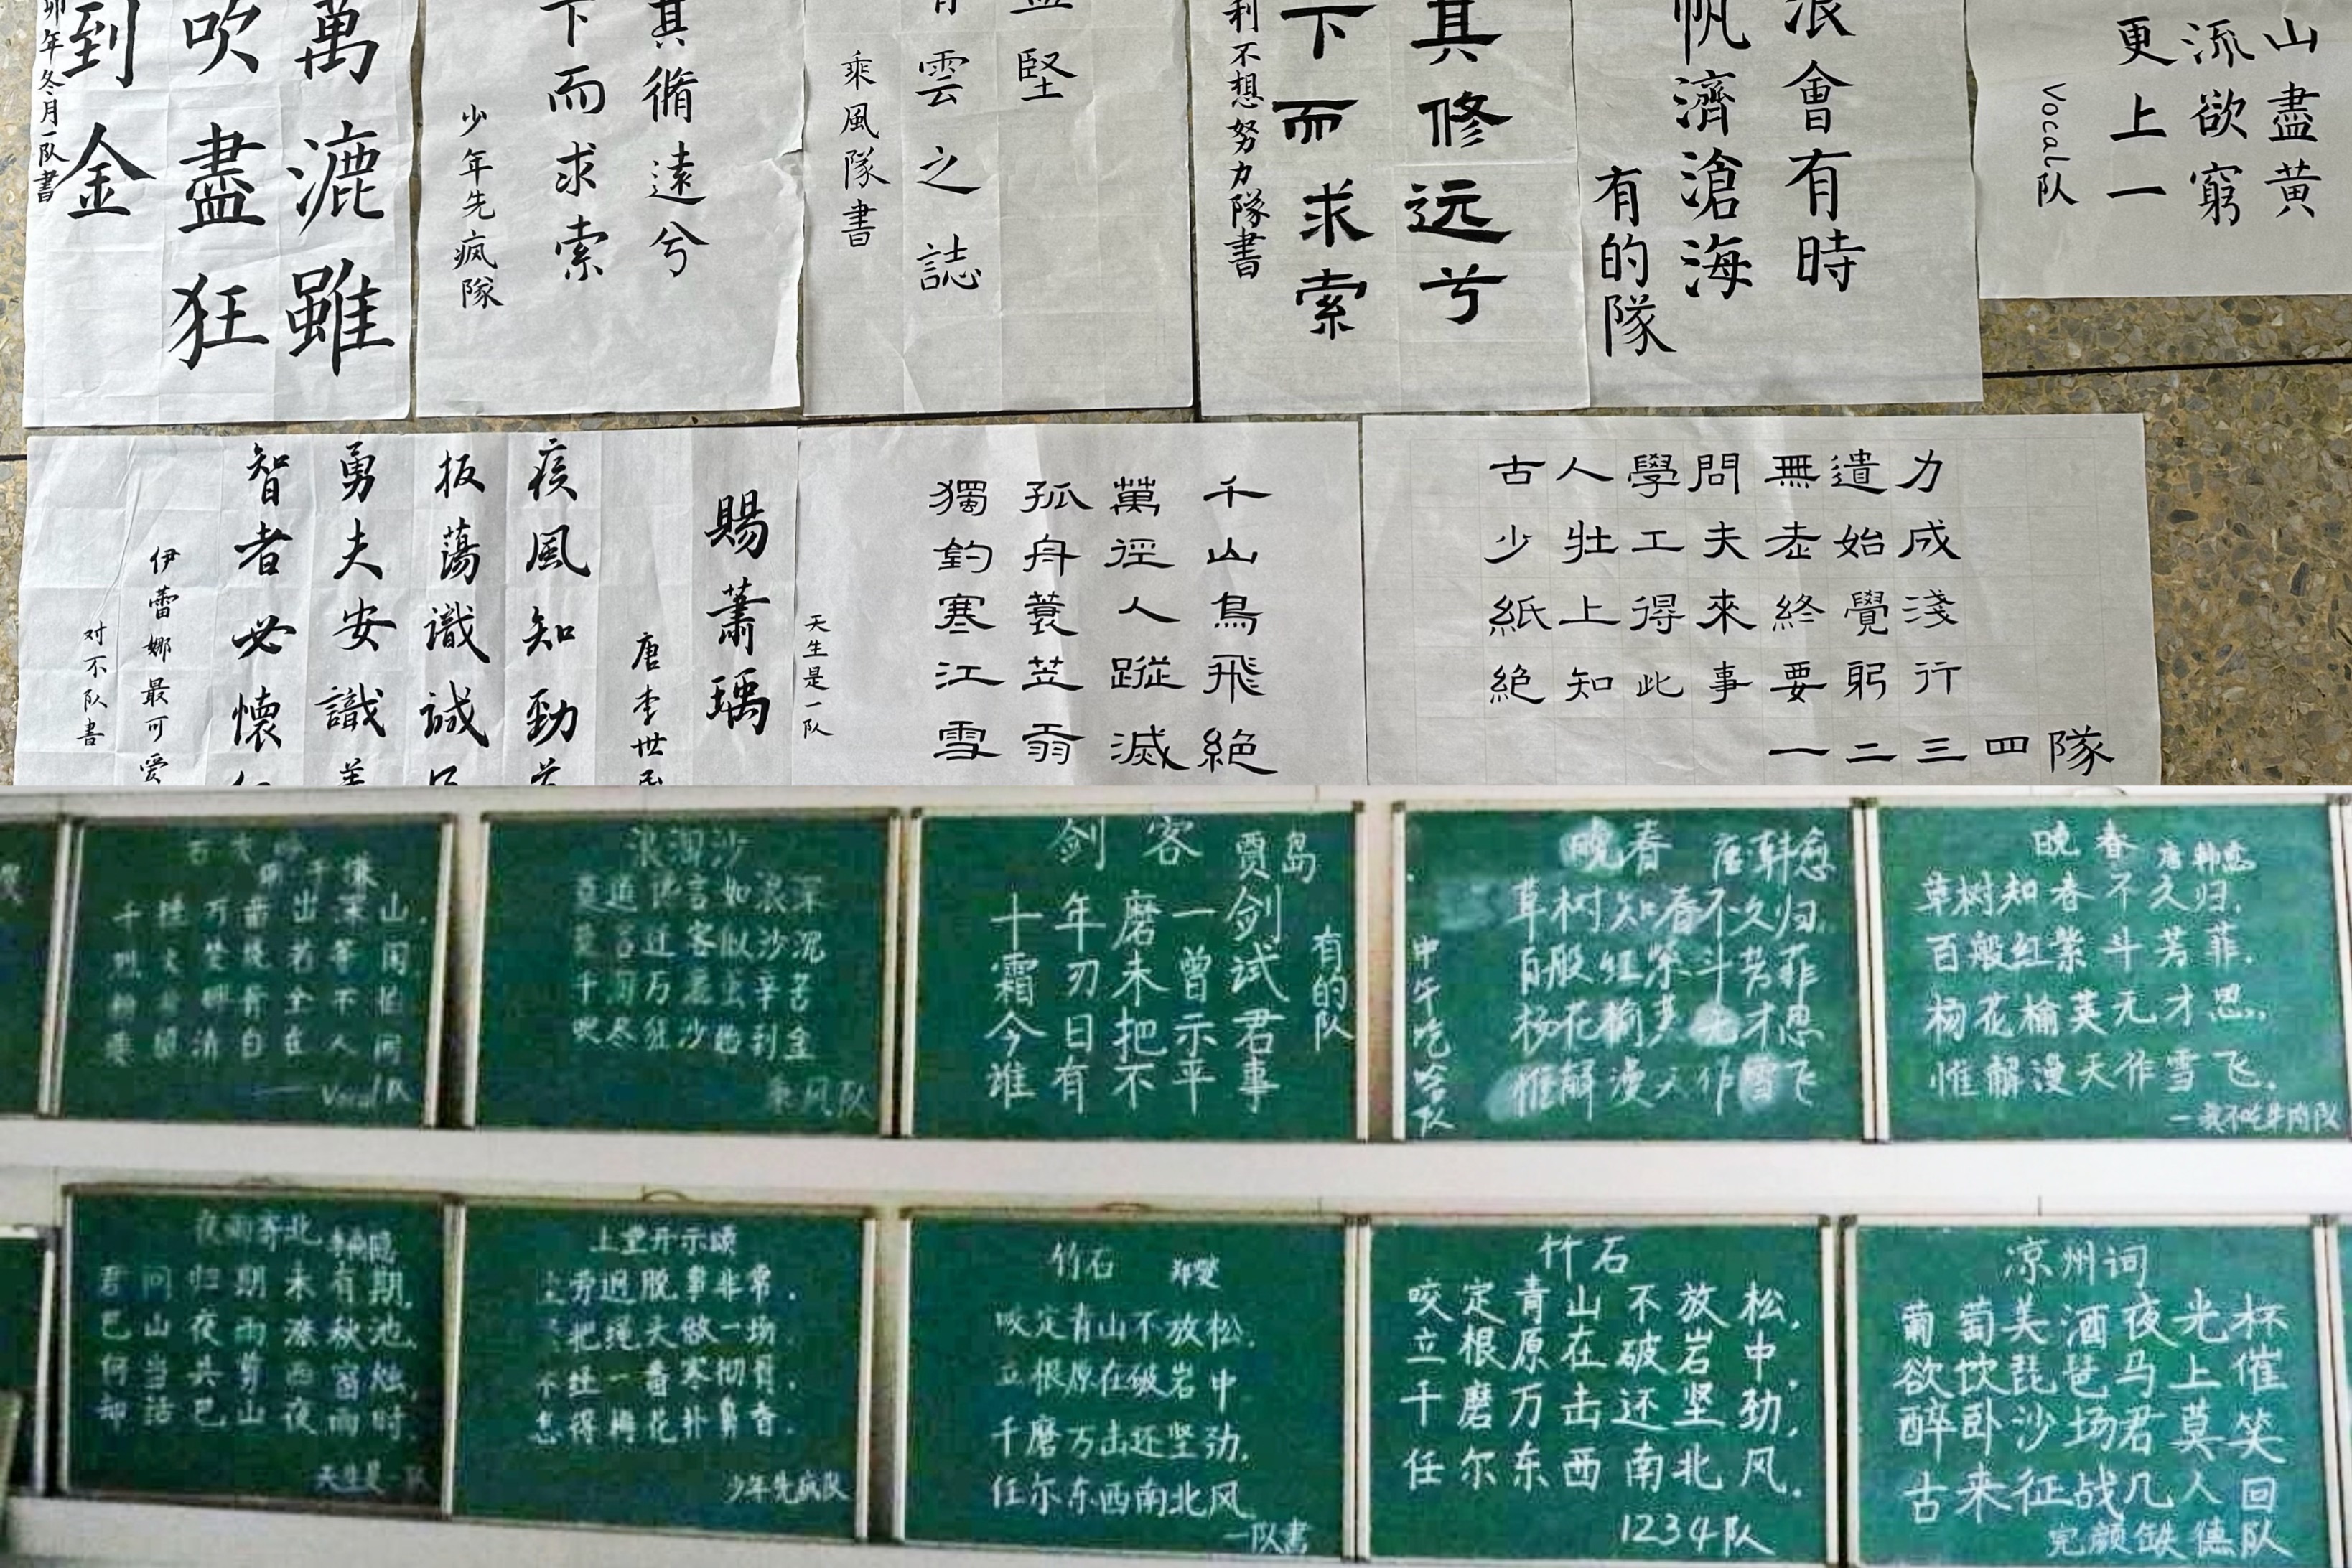 萬漉雖
吹盡狂
到金
卯年冬月一队書
其脩遠兮
下而求索
少年先疯隊
堅
雲之誌
乘風隊書
其修远兮
下而求索
利不想努力隊書
浪會有時
帆濟滄海
有的隊
山盡黃
流欲窮
更上一
Vocal队
賜蕭瑀
唐李世民
疾風知勁
板蕩識誠
勇夫安識
智者必懷
伊蕾娜最可爱
对不队書
千山鳥飛絕
萬徑人蹤滅
孤舟蓑笠翁
獨釣寒江雪
天生是一队
古人學問無遺力
少壯工夫老始成
紙上得來終覺淺
絕知此事要躬行
一二三四隊
千锤万凿出深山.
烈火焚烧若等闲
清白在人间
Vocal队
浪淘沙
莫道谗言如浪深
莫言迁客似沙沉
千淘万漉虽辛苦
吹尽狂沙始到金
乘风队
剑客 贾岛
十年磨一剑
霜刃未曾试
今日把示君
谁有不平事
有的队
晚春 唐·韩愈
草树知春不久归.
百般红紫斗芳菲
杨花榆荚无才思
惟解漫天作雪飞
中午吃啥队
晚春 唐 韩愈
草树知春不久归.
百般红紫斗芳菲.
杨花榆荚无才思.
惟解漫天作雪飞.
一我不吃牛肉队
夜雨寄北 李商隐
君问归期未有期.
巴山夜雨涨秋池.
何当共剪西窗烛,
却话巴山夜雨时.
天生是一队
上堂开示颂
尘劳迥脱事非常.
把绳头做一场
不经一番寒彻骨.
怎得梅花扑鼻香.
少年先疯队
竹石 郑燮
咬定青山不放松.
立根原在破岩中.
千磨万击还坚劲.
任尔东西南北风
一队書
竹石
咬定青山不放松.
立根原在破岩中.
千磨万击还坚劲.
任尔东西南北风.
1234队
凉州词
葡萄美酒夜光杯
欲饮琵琶马上催
醉卧沙场君莫笑
古来征战几人回
完颜缺德队